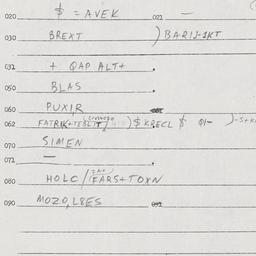 020 $ = AVEK 021 —
030 BREXT ) BARIJ-1KT
031 + QAP ALT+ .
050 BLAS .
060 PUXIR
062 FATRIK+TEBLIT ) $ KRECL $
070 SIMEN
071 — .
080 HOLC / FARS+TOXN
090 MOZO, L8ES